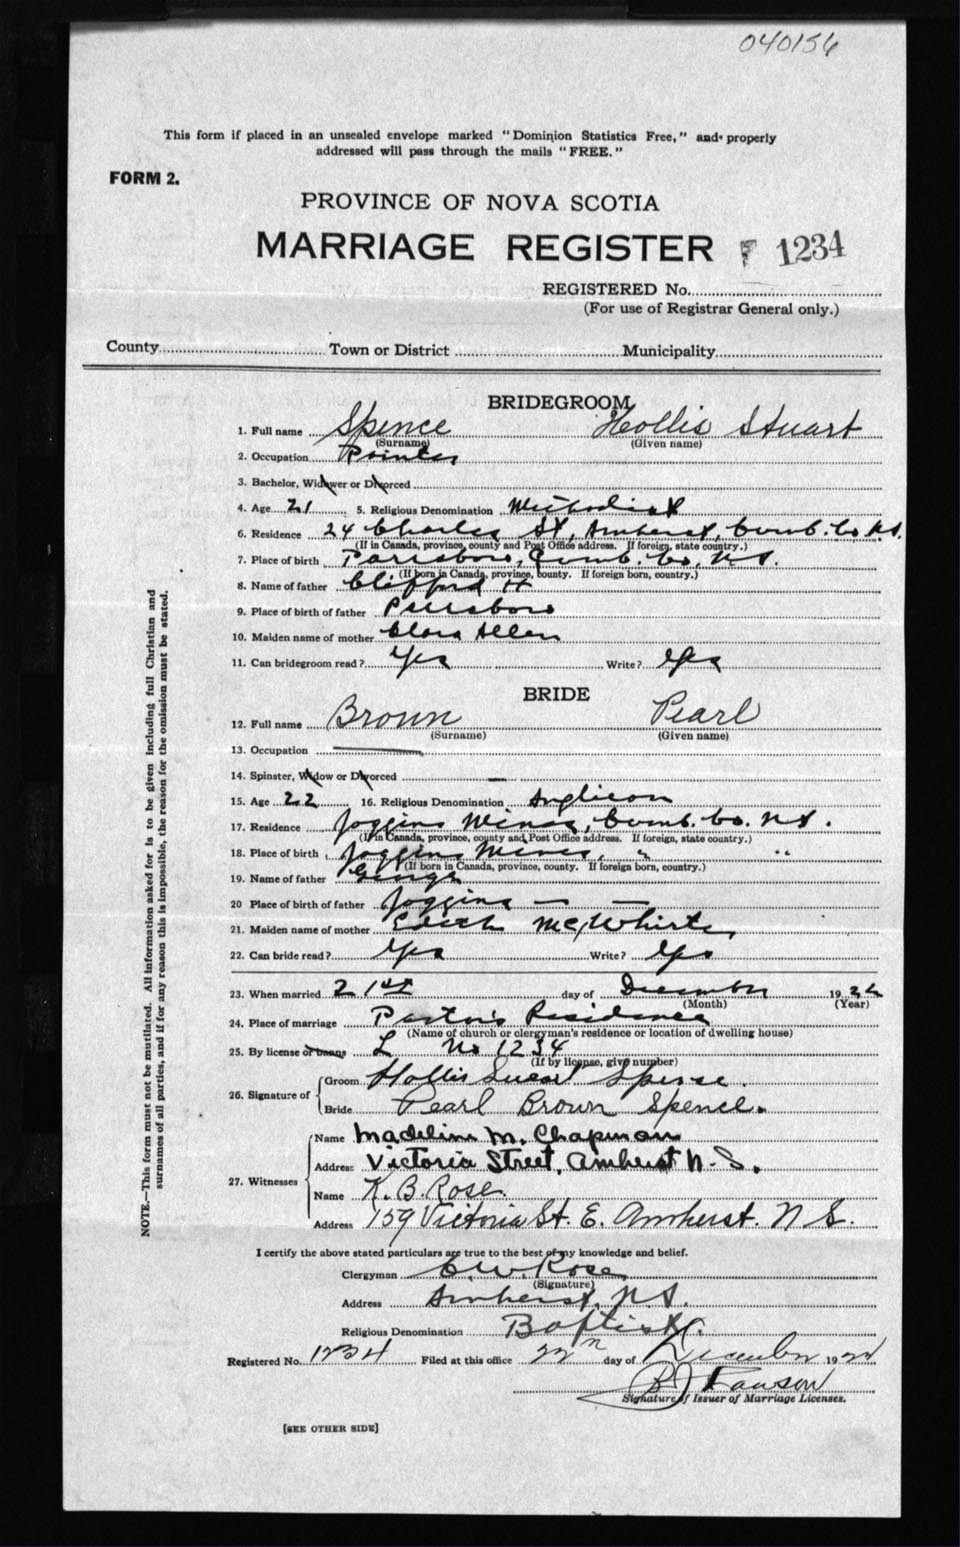 040156
This form if placed in an unsealed envelope marked "Dominion Statistics Free," and properly
addressed will pass through the mails "FREE."
FORM 2.
PROVINCE OF NOVA SCOTIA
MARRIAGE REGISTER 1234
REGISTERED No.
(For use of Registrar General only.)
County Town or District Municipality
BRIDEGROOM
1. Full name Spence Hollis Stuart
(Surname) (Given name)
2. Occupation
3. Bachelor, Widower or Divorced
4. Age 21 5. Religious Denomination Methodist
6. Residence 24 Charles St, Amherst, Cumb. Co N.S.
(If in Canada, province, county and Post Office address. If foreign, state country.)
7. Place of birth Parrsboro, Cumb. Co, N.S.
(If born in Canada, province, county. If foreign born, country.)
8. Name of father Clifford H
9. Place of birth of father Parrsboro
10. Maiden name of mother Clara Allen
11. Can bridegroom read? Yes Write? Yes
BRIDE
12. Full name Brown Pearl
(Surname) (Given name)
13. Occupation —
14. Spinster, Widow or Divorced —
15. Age 22 16. Religious Denomination Anglican
17. Residence Joggins Mines, Cumb. Co. N.S.
(If in Canada, province, county and Post Office address. If foreign, state country.)
18. Place of birth Joggins Mines, " "
(If born in Canada, province, county. If foreign born, country.)
19. Name of father George
20 Place of birth of father Joggins — —
21. Maiden name of mother Edith McWhirter
22. Can bride read? Yes Write? Yes
23. When married 21st day of December 19
(Month) (Year)
24. Place of marriage Pastor's Residence
(Name of church or clergyman's residence or location of dwelling house)
25. By license or banns L No 1234
(If by license, give number)
26. Signature of
Groom Hollis Stuart Spence.
Bride Pearl Brown Spence.
27. Witnesses
Name Madeline M. Chapman
Address Victoria Street, Amherst N.S.
Name K. B. Rose.
Address 159 Victoria St. E. Amherst. N S.
I certify the above stated particulars are true to the best of my knowledge and belief.
Clergyman C. W. Rose
(Signature)
Address Amherst, N.S.
Religious Denomination Baptist.
Registered No. 1234 Filed at this office 22 day of December 19
Signature of Issuer of Marriage Licenses.
[SEE OTHER SIDE]
NOTE.—This form must not be mutilated. All information asked for is to be given including full Christian and
surnames of all parties, and if for any reason this is impossible, the reason for the omission must be stated.